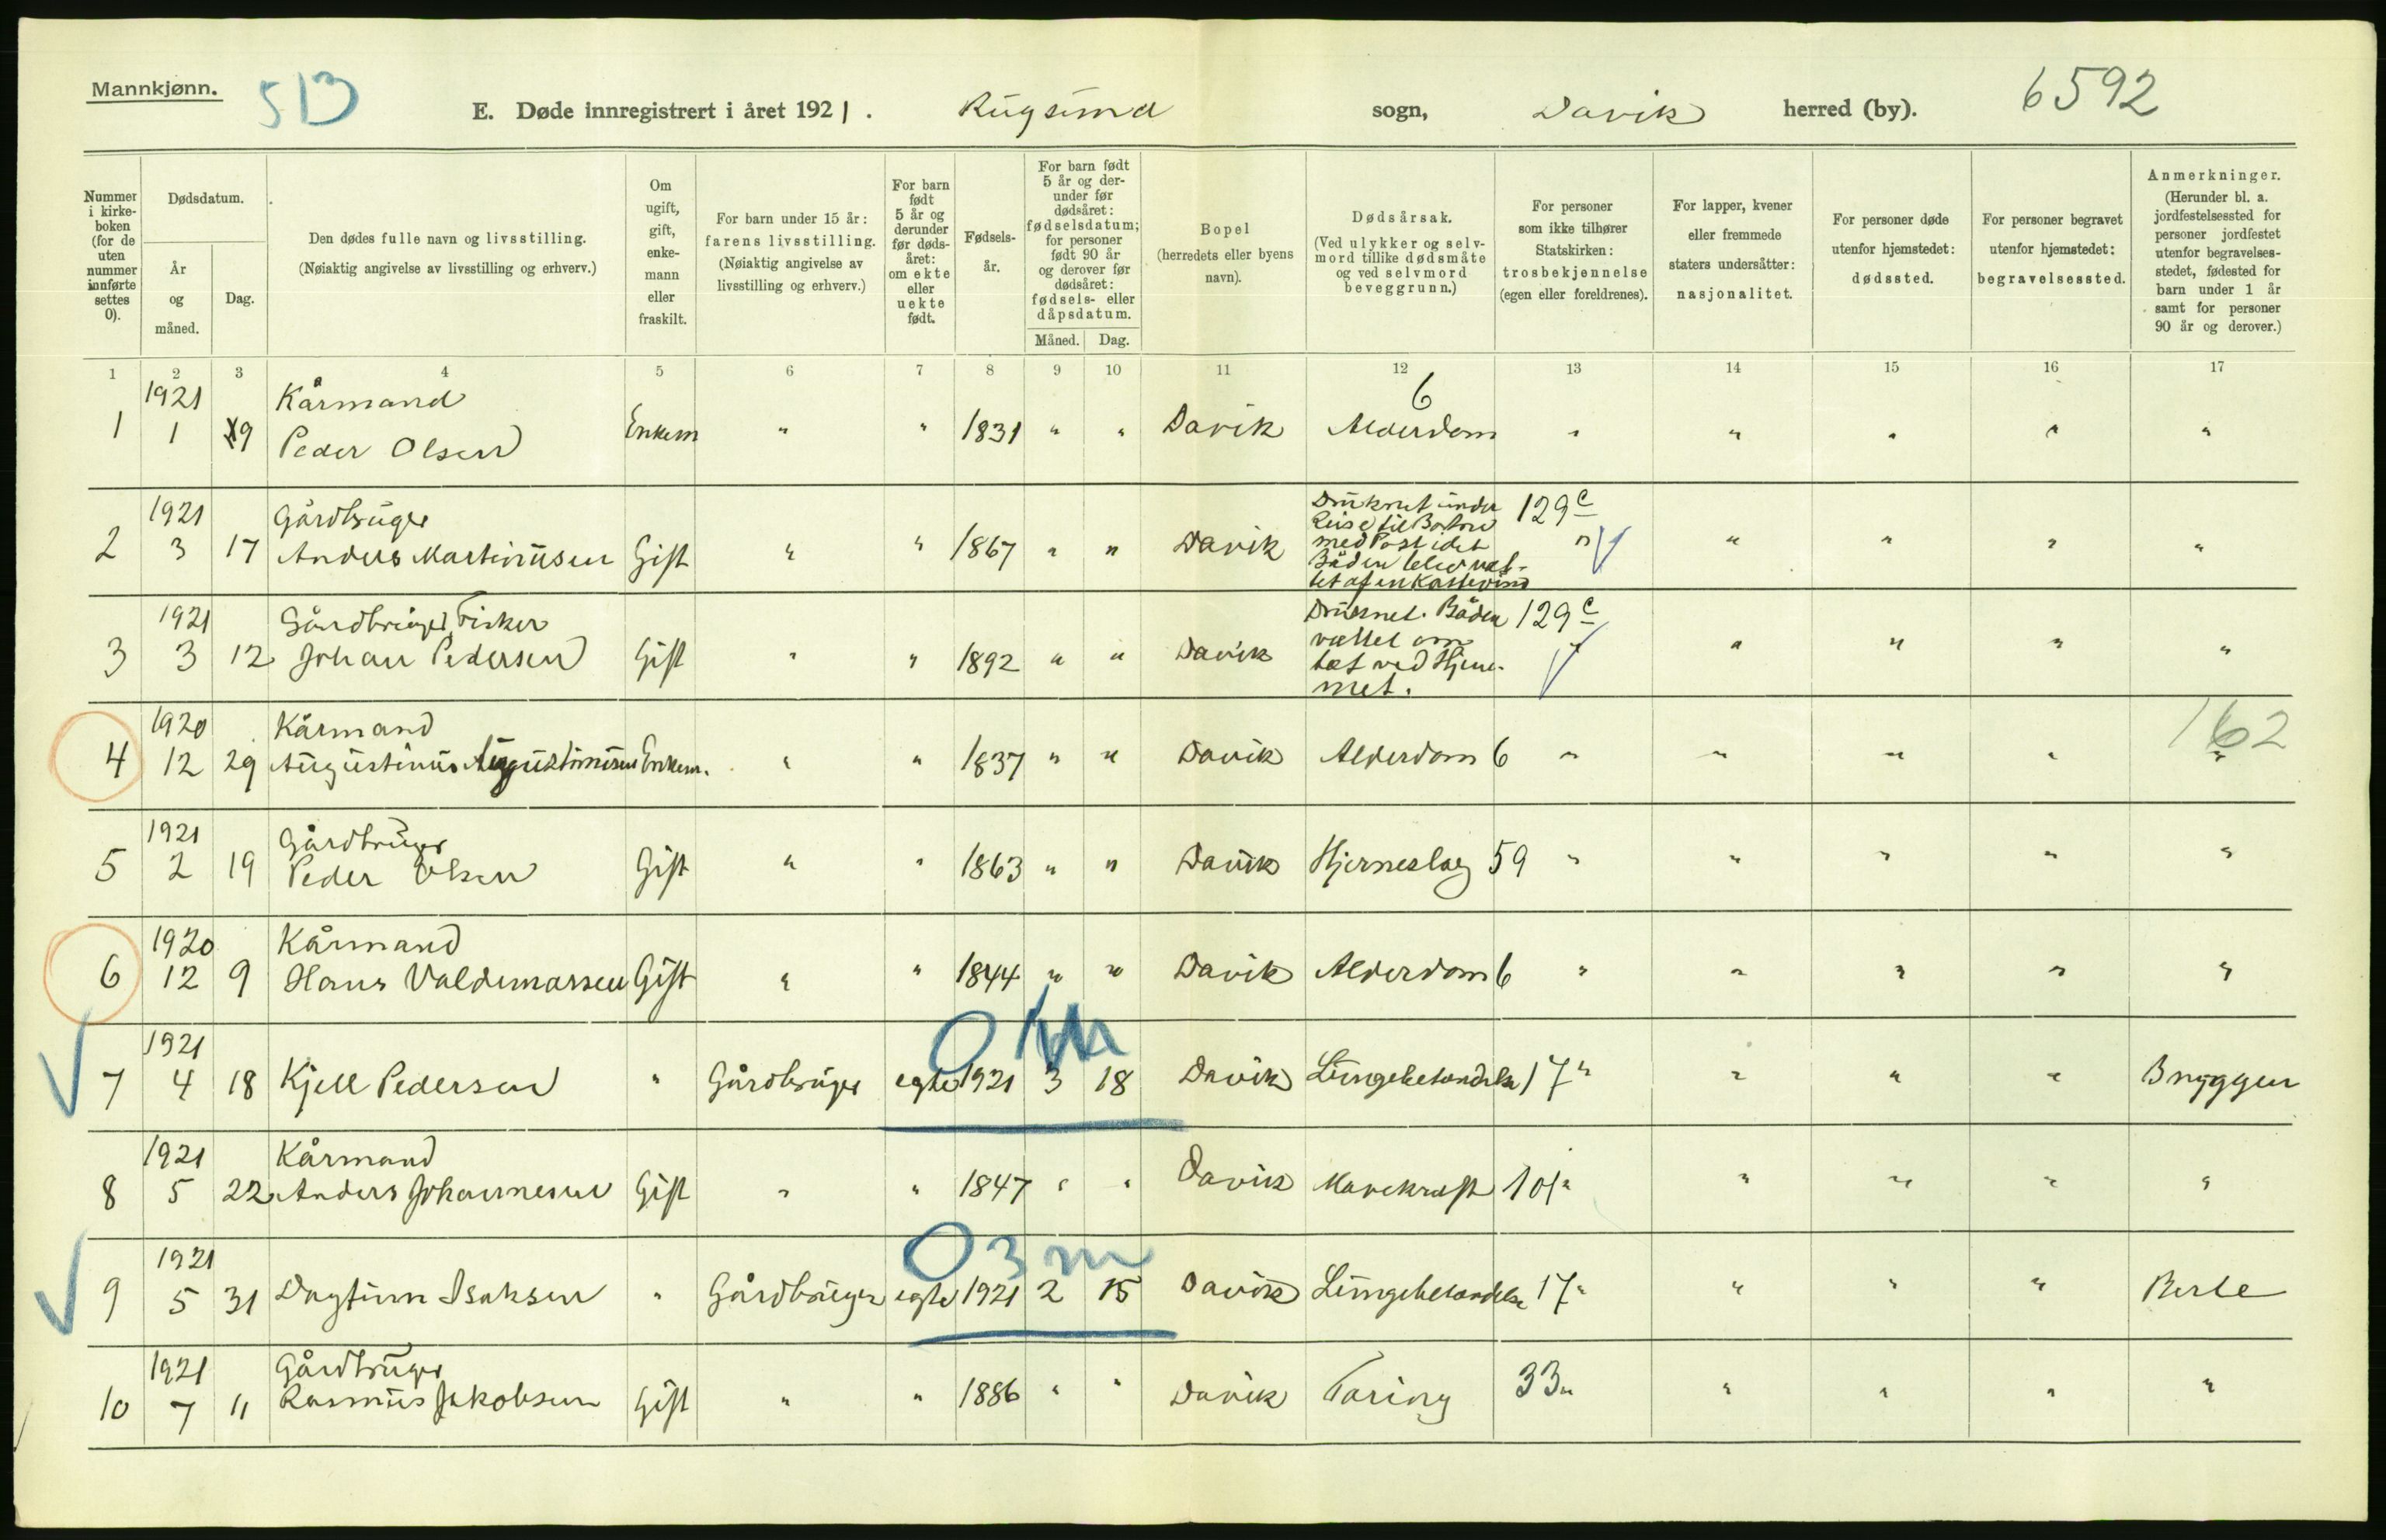 Mannkjønn.
513
E. Døde innregistrert i året 1921. Rugsund sogn, Davik herred (by). 6592
Nummer i kirkeboken (for de uten nummer innførte settes 0).
Dødsdatum.
År og måned.
Dag.
Den dødes fulle navn og livsstilling.
(Nøiaktig angivelse av livsstilling og erhverv.)
Om ugift, gift, enkemann eller fraskilt.
For barn under 15 år: farens livsstilling. (Nøiaktig angivelse av livsstilling og erhverv.)
For barn født 5 år og derunder før dødsåret: om ekte eller uekte født.
Fødselsår.
For barn født 5 år og derunder før dødsåret: fødselsdatum; for personer født 90 år og derover før dødsåret: fødsels- eller dåpsdatum.
Måned. Dag.
Bopel (herredets eller byens navn).
Dødsårsak. (Ved ulykker og selvmord tillike dødsmåte og ved selvmord beveggrunn.)
For personer som ikke tilhører Statskirken: trosbekjennelse (egen eller foreldrenes).
For lapper, kvener eller fremmede staters undersåtter: nasjonalitet.
For personer døde utenfor hjemstedet: dødssted.
For personer begravet utenfor hjemstedet: begravelsessted.
Anmerkninger. (Herunder bl. a. jordfestelsessted for personer jordfestet utenfor begravelsesstedet, fødested for barn under 1 år samt for personer 90 år og derover.)
1 2 3 4 5 6 7 8 9 10 11 12 13 14 15 16 17
1921 Kårmand 6
1 1 19 Peder Olsen Enkem " " 1831 " " Davik Alderdom " " " " "
1921 Gårdbruger Druknet under 129c
Reise til
med Post idet
2 3 17 Anders Martinusen Gift " " 1867 " " Davik Båden blev væl- " " " " "
tet af en Kastevind
1921 Gårdbruger, Fisker Druknet. Båden 129c
3 3 12 Johan Pedersen Gift " " 1892 " " Davik væltet om " " " " "
tæt ved Hjem-
met.
1920 Kårmand 162
4 12 29 Augustinus Augustinusen Enkem. " " 1837 " " Davik Alderdom 6 " " " " "
1921 Gårdbruger
5 2 19 Peder Olsen Gift " " 1863 " " Davik Hjerneslag 59 " " " " "
1920 Kårmand
6 12 9 Hans Valdemarsen Gift " " 1844 " " Davik Alderdom 6 " " " " "
1921 0
7 4 18 Kjell Pedersen " Gårdbruger egte 1921 3 18 Davik Lungebetændelse 17 " " " " Bryggen
1921 Kårmand
8 5 22 Anders Johannesen Gift " " 1847 " " Davik Mavekraft 101 " " " " "
1921 0 3 m
9 5 31 Dagfinn Isaksen " Gårdbruger egte 1921 2 15 Davik Lungebetændelse 17 " " " " Berle
1921 Gårdbruger
10 7 11 Rasmus Jakobsen Gift " " 1886 " " Davik Tæring 33 " " " " "